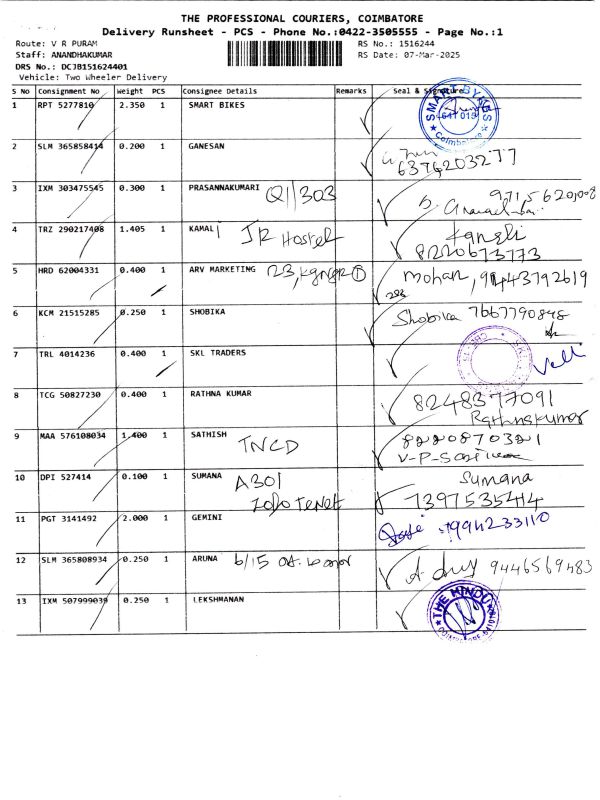 THE PROFESSIONAL COURIERS, COIMBATORE
Delivery Runsheet - PCS - Phone No.:0422-3505555 - Page No.:1
Route: V R PURAM RS No.: 1516244
Staff: ANANDHAKUMAR RS Date: 07-Mar-2025
DRS No.: DCJB151624401
Vehicle: Two Wheeler Delivery
S No Consignment No Weight PCS Consignee Details Remarks Seal & Signature
1 RPT 5277810 2.350 1 SMART BIKES SMART BYKES 641 015 Coimbatore
2 SLM 365858414 0.200 1 GANESAN
6374203277
3 IXM 303475545 0.300 1 PRASANNAKUMARI Q1/303 9715620008
4 TRZ 290217408 1.405 1 KAMALI JR Hostel
8220673773
5 HRD 62004331 0.400 1 ARV MARKETING 23, mohan, 9443792619
6 KCM 21515285 0.250 1 SHOBIKA Shobika 7667790848
7 TRL 4014236 0.400 1 SKL TRADERS
8 TCG 50827230 0.400 1 RATHNA KUMAR 8248377091
Rathnakumar
9 MAA 576108034 1.400 1 SATHISH TNCD 8220870321
10 DPI 527414 0.100 1 SUMANA A301 Sumana
7397535414
11 PGT 3141492 2.000 1 GEMINI 9994233110
12 SLM 365808934 0.250 1 ARUNA 6/15 9446569483
13 IXM 507999039 0.250 1 LEKSHMANAN THE HINDU